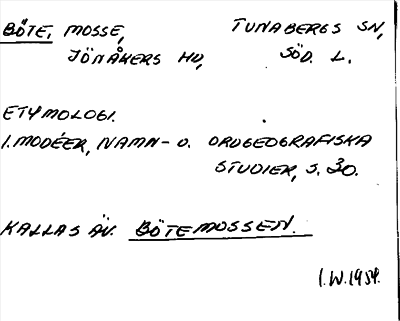 BÖTE, MOSSE, TUNABERGS SN,
JÖNÅKERS HD, SÖD. L.
ETYMOLOGI.
I. MODÉER, NAMN- O. ORDGEOGRAFISKA
STUDIER, S. 30.
KALLAS ÄV. BÖTEMOSSEN.
I.W. 1959.